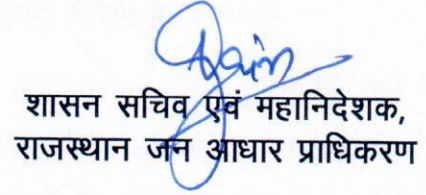 शासन सचिव एवं महानिदेशक,
राजस्थान जन आधार प्राधिकरण